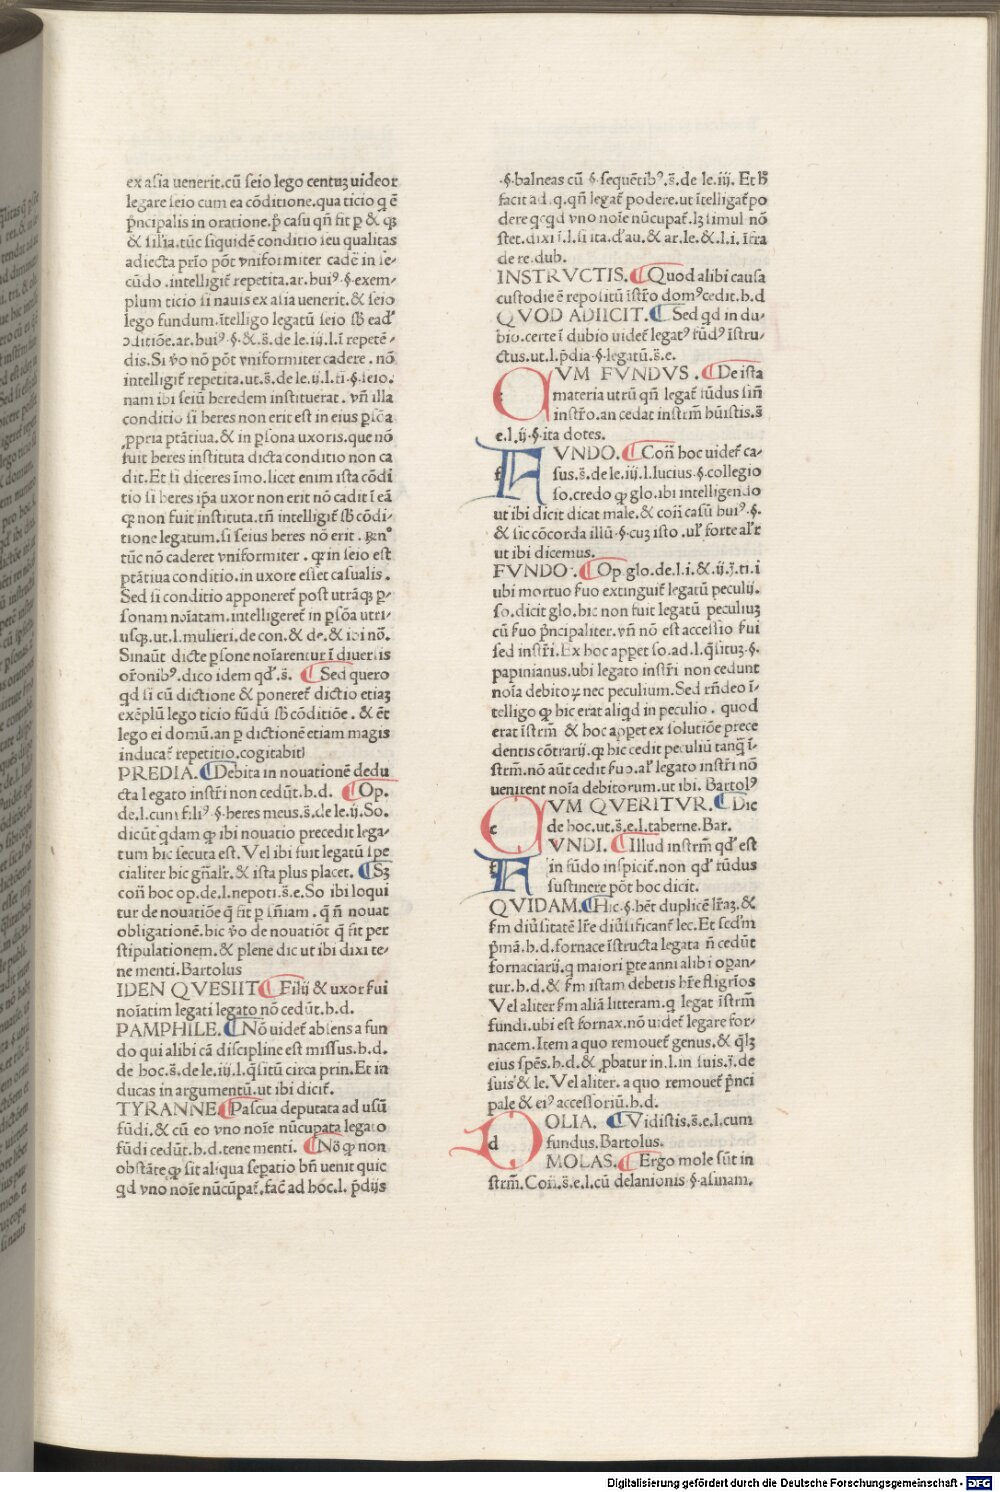 ex asia uenerit.cū seio lego centuꝫ uideor
legare seio cum ea cōditione.qua ticio q ē
p̄ncipalis in oratione.p̄ casu qn̄ fit ꝑ & qꝫ
& sil'ia.tūc siquidē conditio seu qualitas
adiecta prīo pōt vniformiter cadē in se/
cūdo .intelligit᷑ repetita.ar.huiꝰ.§.exem/
plum ticio si nauis ex asia uenerit.& seio
lego fundum.ītelligo legatū seio sb̄ ead'
ↄditiōe.ar.huiꝰ.§.& .s̄.de le.iij.l.ī repetē/
dis.Si v̄o nō pōt vniformiter cadere . nō
intelligit᷑ repetita.ut.s̄.de le.ij.l.ti.§.seio.
nam ibi seiū heredem instituerat. vn̄ illa
conditio si heres non erit est in eius ꝑsōa
ꝓpria ptātiua.& in ꝑsona uxoris.que nō
fuit heres instituta dicta conditio non ca
dit.Et si diceres īmo.licet enim ista cōdi
tio si heres ip̄a uxor non erit nō cadit ī eā
ꝙ non fuit instituta.tn̄ intelligit᷑ sb̄ cōdi/
tione legatum.si seius heres nō erit .
tūc nō caderet vniformiter . ꝙ in seio est
ptātiua conditio.in uxore esset casualis.
Sed si conditio apponeret᷑ post utrāqꝫ ꝑ/
sonam noīatam.intelligeret᷑ in ꝑsōa utri/
usqꝫ.ut.l.mulieri.de con.& de.& ibi nō.
Sinaūt dicte ꝑsone noīarentur ī diuersis
or̄onibꝰ.dico idem qd'.s̄. ¶Sed quero
qd si cū dictione & poneret᷑ dictio etiaꝫ
exēplū lego ticio fūdū sb̄ cōditiōe. & ēt
lego ei domū.an ꝑ dictionē etiam magis
inducat᷑ repetitio.cogitabit)
PREDIA. ¶Debita in nouationē dedu
cta legato instr̄i non cedūt.h.d. ¶Op.
de.l.cum filiꝰ.§.heres meus.s̄.de le.ij.So.
dicūt qdam ꝙ ibi nouatio precedit lega/
tum hic secuta est.Vel ibi fuit legatū spe
cialiter hic gn̄alr̄.& ista plus placet. ¶Sꝫ
con̄ hoc op.de.l.nepoti.s̄.e.So ibi loqui
tur de nouatiōe q̄ fit ꝑ sn̄iam .q̄ n̄ nouat
obligationē.hic v̄o de nouatiōe q̄ fit per
stipulationem.& plene dic ut ibi dixi te/
ne menti.Bartolus
IDEN QVESIIT ¶Filij & uxor sui
noīatim legati legato nō cedūt.h.d.
PAMPHILE. ¶Nō uidet᷑ absens a fun
do qui alibi cā discipline est missus.h.d.
de hoc.s̄.de le.iij.l.q̄sitū circa prin.Et in
ducas in argumentū.ut ibi dicit᷑.
TYRANNE ¶Pascua deputata ad usū
fūdi.& cū eo vno noīe nūcupata legato
fūdi cedūt.h.d.tene menti. ¶Nō ꝙ non
obstāte ꝙ sit aliqua seꝑatio bn̄ uenit quic
qd vno noīe nūcupat᷑.fac̄ ad hoc.l. p̄dijs
.§.balneas cū §.sequētibꝰ.s̄.de le.iij. Et h̄
facit ad.q.qn̄ legat᷑ podere.ut ītelligat᷑ po
dere qcqd vno noīe nūcupat᷑.lꝫ simul nō
stet.dixi ī.l.si ita.d'au.& ar.le.& .l.i. īfra
de re.dub.
INSTRVCTIS. ¶Quod alibi causa
custodie ē repositū īstr̄o domꝰ cedit.h.d
QVOD ADIICIT. ¶Sed qd in du/
bio.certe ī dubio uidet᷑ legatꝰ fūdꝰ īstru/
ctus.ut.l.p̄dia.§.legatū.s̄.e.
CVM FVNDVS . ¶De ista
materia utrū qn̄ legat᷑ fūdus sim̄
instr̄o.an cedat instrm̄ hūistis.s̄
e.l.ij.§.ita dotes.
FVNDO. ¶Con̄ hoc uidet᷑ ca/
sus.s̄.de le.iij.l.lucius.§.collegio
so.credo ꝙ glo.ibi intelligendo
ut ibi dicit dicat male.& con̄ casū huiꝰ.§.
& sic cōcorda illū.§.cuꝫ isto .ul' forte al'r
ut ibi dicemus.
FVNDO . ¶Op.glo.de.l.i.& .ij.j̄.ti.i
ubi mortuo suo extinguit᷑ legatū peculij.
so.dicit glo.hic non fuit legatū peculiuꝫ
cū suo p̄ncipaliter.vn̄ nō est accessio sui
sed instr̄i.Ex hoc apꝑet so.ad.l.q̄situꝫ.§.
papinianus.ubi legato instr̄i non cedunt
noīa debitoꝝ nec peculium.Sed rn̄deo ī/
telligo ꝙ hic erat aliqd in peculio . quod
erat īstrm̄ & hoc apꝑet ex solutiōe prece
dentis cōtrarij.ꝙ hic cedit peculiū tanq̄ ī/
strm̄.nō aūt cedit suo.al' legato instr̄i nō
uenirent noīa debitorum.ut ibi. Bartolꝰ
CVM QVERITVR. ¶Dic
de hoc.ut.s̄.e.l.taberne.Bar.
FVNDI. ¶Illud instrm̄ qd' est
in fūdo inspicit᷑.non qd' fūdus
sustinere pōt hoc dicit.
QVIDAM. ¶Hic.§.hēt duplicē lr̄aꝫ.&
s̄m diu'sitatē lr̄e diu'sificant᷑ lec.Et scd'm
p̄mā.h.d.fornace īstructa legata n̄ cedūt
fornaciarij.q maiori ꝑte anni alibi oꝑan/
tur.h.d.& s̄m istam debetis hr̄e fligrīos
Vel aliter s̄m aliā litteram.q legat īstrm̄
fundi.ubi est fornax.nō uidet᷑ legare for/
nacem.Item a quo remouet᷑ genus.& qlꝫ
eius spēs.h.d.& ꝓbatur in.l.in suis.j̄.de
suis & le.Vel aliter. a quo remouet᷑ p̄nci
pale & eiꝰ accessoriū.h.d.
DOLIA. ¶Vidistis.s̄.e.l.cum
fundus.Bartolus.
MOLAS. ¶Ergo mole sūt in
strm̄.Con̄.s̄.e.l.cū delanionis.§.asinam.
Digitalisierung gefördert durch die Deutsche Forschungsgemeinschaft - DFG